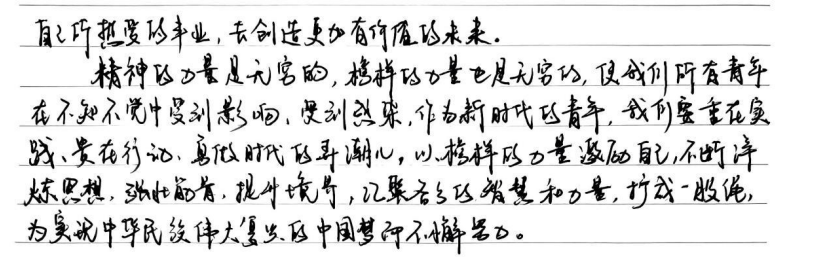 自己所热爱的事业，去创造更加有价值的未来。
精神的力量是无穷的，榜样的力量也是无穷的，使我们所有青年
在不知不觉中受到影响、受到感染，作为新时代的青年，我们要重在实
践、贵在行动、勇做时代的弄潮儿，以榜样的力量激励自己，不断淬
炼思想，强壮筋骨，提升境界，汇聚各自的智慧和力量，拧成一股绳，
为实现中华民族伟大复兴的中国梦而不懈努力。